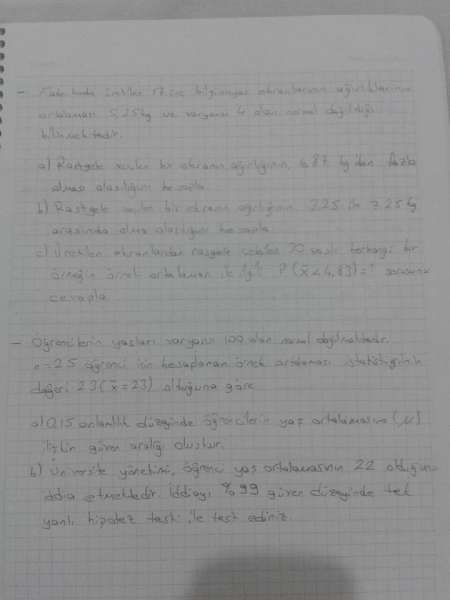 üretilen 17 inç bilgisayar ekranlarının ağırlıklarının
ortalaması 5,25kg ve varyansı 4 olan normal dağıldığı
bilinmektedir.
a) Rastgele seçilen bir ekranın ağırlığının, 6.87 kg'dan fazla
olması olasılığını hesapla.
b) Rastgele seçilen bir ekranın ağırlığının 3.25 ile 7.25 kg
arasında olma olasılığını hesapla
c) Üretilen ekranlardan rasgele çekilen 20 herhangi bir
örneğin örnek ortalaması ile ilgili P(x̄<4,83)=? sorusunu
cevapla
- Öğrencilerin yaşları varyansı 100 olan normal dağılmaktadır.
n=25 öğrenci için hesaplanan örnek ortalaması istatistiğinin
değeri 23 (x̄=23) olduğuna göre
a) 0,15 anlamlılık düzeyinde öğrencilerin yaş ortalamasına (μ)
ilişkin güven aralığı oluştur.
b) Üniversite yönetimi, öğrenci yaş ortalamasının 22 olduğunu
iddia etmektedir. İddiayı %99 güven düzeyinde tek
yanlı hipotez testi ile test ediniz.